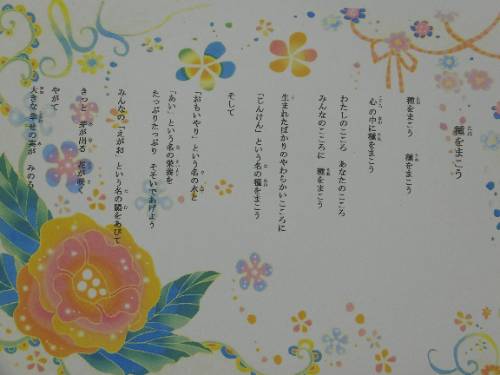 種をまこう
種をまこう 種をまこう
心の中に種をまこう
わたしのこころ あなたのこころ
みんなのこころに 種をまこう
生まれたばかりのやわらかいこころに
「じんけん」という名の種をまこう
そして
「おもいやり」という名の水と
「あい」という名の栄養を
たっぷりたっぷり そそいであげよう
みんなの「えがお」という名の陽をあびて
きっと 芽が出る 花が咲く
やがて
大きな幸せの実が みのる